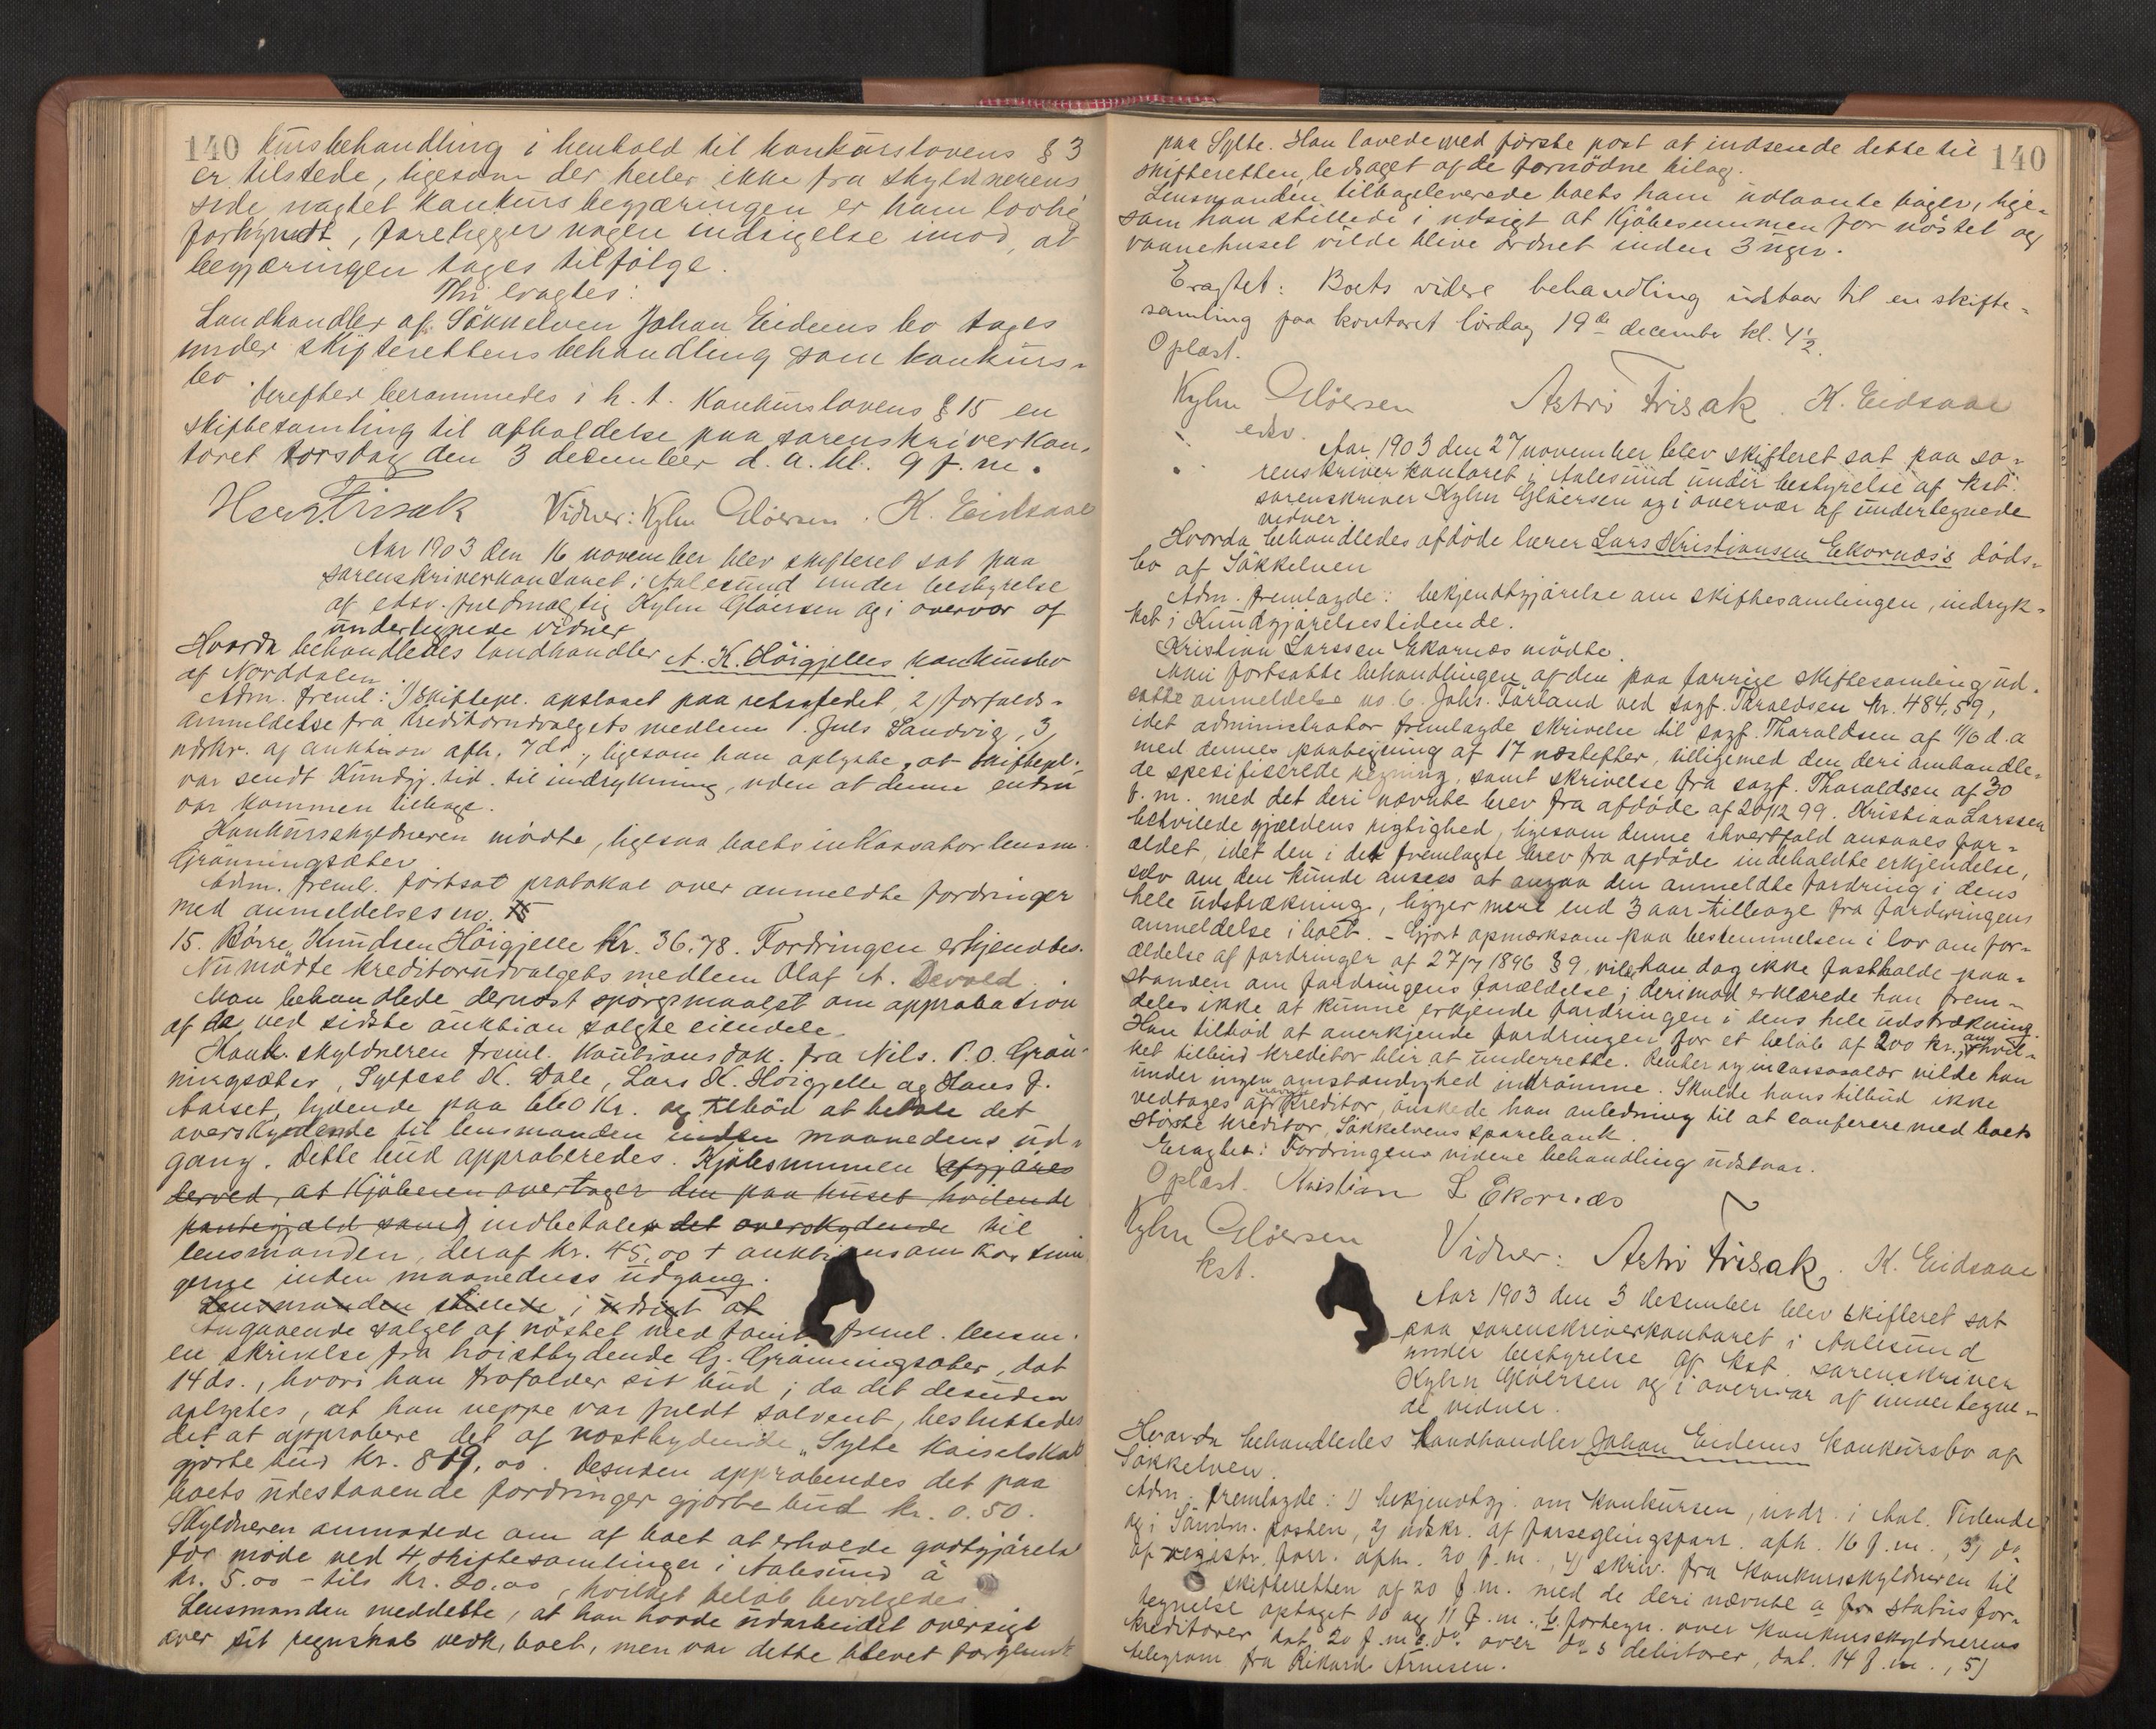 140 kursbehandling i henhold til konkurslovens § 3
er tilstede, ligesom der heller ikke fra skyldnerens
side uagtet konkursbegjæringen er ham lovlig
forkyndt, foreligger nogen indsigelse imod, at
begjæringen tages tilfølge.
Thi eragtes:
Landhandler af Søkkelven Johan Eidems bo tages
under skifterettens behandling som konkurs-
bo.
Derefter berammedes i h. t. Konkurslovens § 15 en
skiftesamling til afholdelse paa sorenskriverkon-
toret torsdag den 3 december d. a. kl. 9 f. m.
Herm Frisak Vidner: Kyhn Gløersen. K. Eidsaae
Aar 1903 den 16 november blev skifteret sat paa
sorenskriverkontoret i Aalesund under bestyrelse
af edsv. fuldmægtig Kyhn Gløersen og i overvær af
undertegnede vidner
Hvorda behandledes landhandler A. K. Höigjelles konkursbo
af Norddalen.
Adm. freml: 1) skiftepl. opslaaet paa retsstedet, 2) forfalds-
anmeldelse fra kreditorudvalgets medlem P. Juls Sandvig, 3)
udskr. af auktion afh. 7 ds., ligesom han oplyste, at skiftepl.
var sendt Kundgj. tid. til indrykning, uden at denne endnu
var kommen tilbage.
Konkursskyldneren mödte, ligesaa boets inkassator lensm.
Grönningsæter.
Adm. freml. fortsat protokol over anmeldte fordringer
med anmeldelses no. 15
15. Börre Knudsen Höigjelle Kr. 36.78. Fordringen erkjendtes.
Nu mödte kreditorudvalgets medlem Olaf A. Devold.
Man behandlede dernæst spörgsmaalet om approbation
af de ved sidste auktion solgte eiendele.
Konk. skyldneren freml. kautionsdok. fra Nils P. O. Grön-
ningsæter, Sylfest K. Dale, Lars K. Höigjelle og Hans J.
Aarset, lydende paa 660 Kr. og tilböd at betale det
overskydende til lensmanden inden maanedens ud-
gang. Dette bud approberedes. Kjöbesummen afgjöres
derved, at Kjöberen overtager den paa huset hvilende
pantegjæld samt indbetaler det overskydende til
lensmanden, deraf kr. 45,00 + auktionsomkostnin
gerne inden maanedens udgang.
Lensmanden stillede i udsigt at
Angaaende salget af nöstet med tomt freml. lensm.
en skrivelse fra höistbydende G. Grönningsæter, dat
14 ds., hvori han frafalder sit bud; da det desuden
oplystes, at han neppe var fuldt solvent, besluttedes
det at approbere det af næstbydende „Sylte Kaiselskab
gjorte bud kr. 819,00. Desuden approbertes det paa
boets udestaaende fordringer gjorte bud kr. 0.50.
Skyldneren anmodede om af boet at erholde godtgjörelse
for möde ved 4 skiftesamlinger i Aalesund à
kr. 5.00 - tils kr. 20.00, hvilket belöb bevilgedes.
Lensmanden meddelte, at han havde udarbeidet oversigt
over sit regnskab vedk. boet, men var dette blevet forglemt
paa Sylte. Han lovede med förste post at indsende dette til 140
skifteretten, ledsaget af de fornödne bilag.
Lensmanden tilbageleverede boets ham udlaante böger, lige-
som han stillede i udsigt at Kjöbesummen for nöstet og
vaanehuset vilde blive ordnet inden 3 uger.
Eragtet: Boets videre behandling udstaar til en skifte-
samling paa kontoret lördag 19de december kl. 4½.
Oplæst.
Kyhn Gløersen Astri Frisak. K. Eidsaae
edsv.
Aar 1903 den 27 november blev skifteret sat paa so-
renskriverkontoret i Aalesund under bestyrelse af kst.
sorenskriver Kyhn Gløersen og i overvær af undertegnede
vidner.
Hvorda behandledes afdöde lærer Lars Kristiansen Ekornæs's döds-
bo af Søkkelven
Adm. fremlagde: bekjendtgjörelse om skiftesamlingen, indryk-
ket i Kundgjörelsestidende.
Kristian Larssen Ekornæs mödte.
Man fortsatte behandlingen af den paa forrige skiftesamling ud-
satte anmeldelse no. 6. Johs. Förland ved sagf. Tharaldsen kr. 484,59,
idet administrator fremlagde skrivelse til sagf. Tharaldsen af 11/6 d. a
med dennes paategning af 17 næstefter, tilligemed den deri omhandle-
de spesifiserede regning, samt skrivelse fra sagf. Tharaldsen af 30
f. m. med det deri nævnte brev fra afdöde af 20/12 99. Kristian Larssen
betvilede gjældens rigtighed, ligesom denne ihvertfald ansaaes for-
ældet, idet den i det fremlagte brev fra afdöde indeholdte erkjendelse,
selv om den kunde ansees at angaa den anmeldte fordring i dens
hele udstrækning, ligger mere end 3 aar tilbage fra fordringens
anmeldelse i boet. - Gjort opmærksom paa bestemmelsen i lov om for-
ældelse af fordringer af 27/7 1896 § 9, vilde han dog ikke fastholde paa-
standen om fordringens forældelse; derimod erklærede han frem-
deles ikke at kunne erkjende fordringen i dens hele udstrækning.
Han tilböd at anerkjende fordringen for et belöb af 200 kr., om hvil-
ket tilbud kreditor blir at underrette. Renter og incassosalær vilde han
under ingen omstændighed indrömme. Skulde hans tilbud ikke
vedtages af kreditor, önskede han anledning til at conferere med boets
störste kreditor, Søkkelvens sparebank.
Eragtet: Fordringens videre behandling udstaar.
Oplæst. Kristian L Ekornæs
Kyhn Gløersen Vidner: Astri Frisak. K. Eidsaae
kst.
Aar 1903 den 3 desember blev skifteret sat
paa sorenskriverkontoret i Aalesund
under bestyrelse af kst. sorenskriver
Kyhn Gløersen og i overvær af undertegne-
de vidner.
Hvorda behandledes Landhandler Johan Eidems konkursbo af
Søkkelven.
Adm. fremlagde: 1) bekjendtgj. om konkursen, indr. i Aal. Tidende
og i Søndm. posten, 2) udskr. af forseglingsforr. afh. 16 f. m., 3) do
af registr. forr. afh. 20 f. m., 4) skriv. fra konkursskyldneren til
skifteretten af 20 f. m. med de deri nævnte a status for-
tegnelse optaget 10 og 11 f. m., b fortegn. over konkursskyldnerens
kreditorer dat. 20 f. m. c do. over do s debitorer, dat. 14 f. m., 5)
telegram fra Rikard Arnesen.